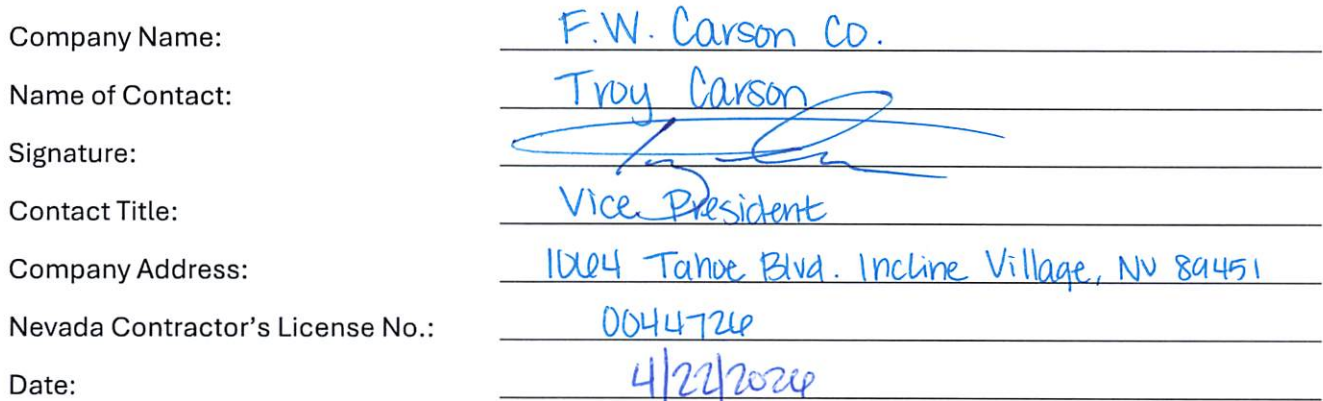 Company Name: F.W. Carson Co.
Name of Contact: Troy Carson
Signature:
Contact Title: Vice President
Company Address: 1064 Tahoe Blvd. Incline Village, NV 89451
Nevada Contractor's License No.: 0044726
Date: 4/22/2026